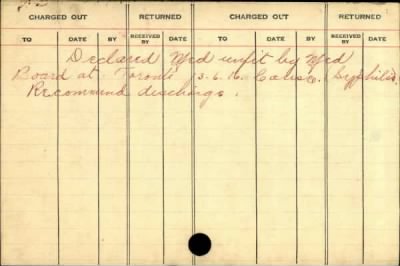 CHARGED OUT RETURNED CHARGED OUT RETURNED
TO DATE BY RECEIVED BY DATE TO DATE BY RECEIVED BY DATE
Declared Med unfit by Med
Board at Toronto 13.6.16. Cause. Syphilis.
Recommend discharge.